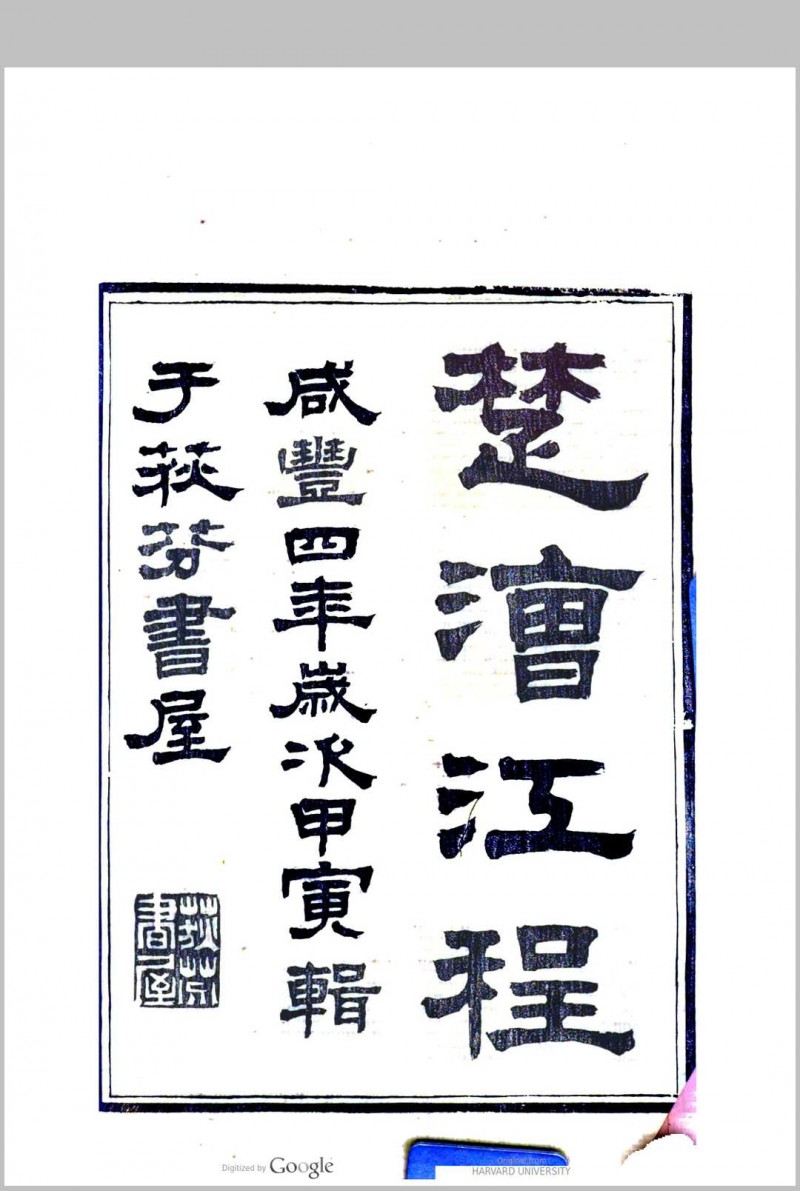 楚漕江程
咸豐四年歲次甲寅輯
于荻芬書屋
荻芬
書屋
Digitized by Google
Original from
HARVARD UNIVERSITY